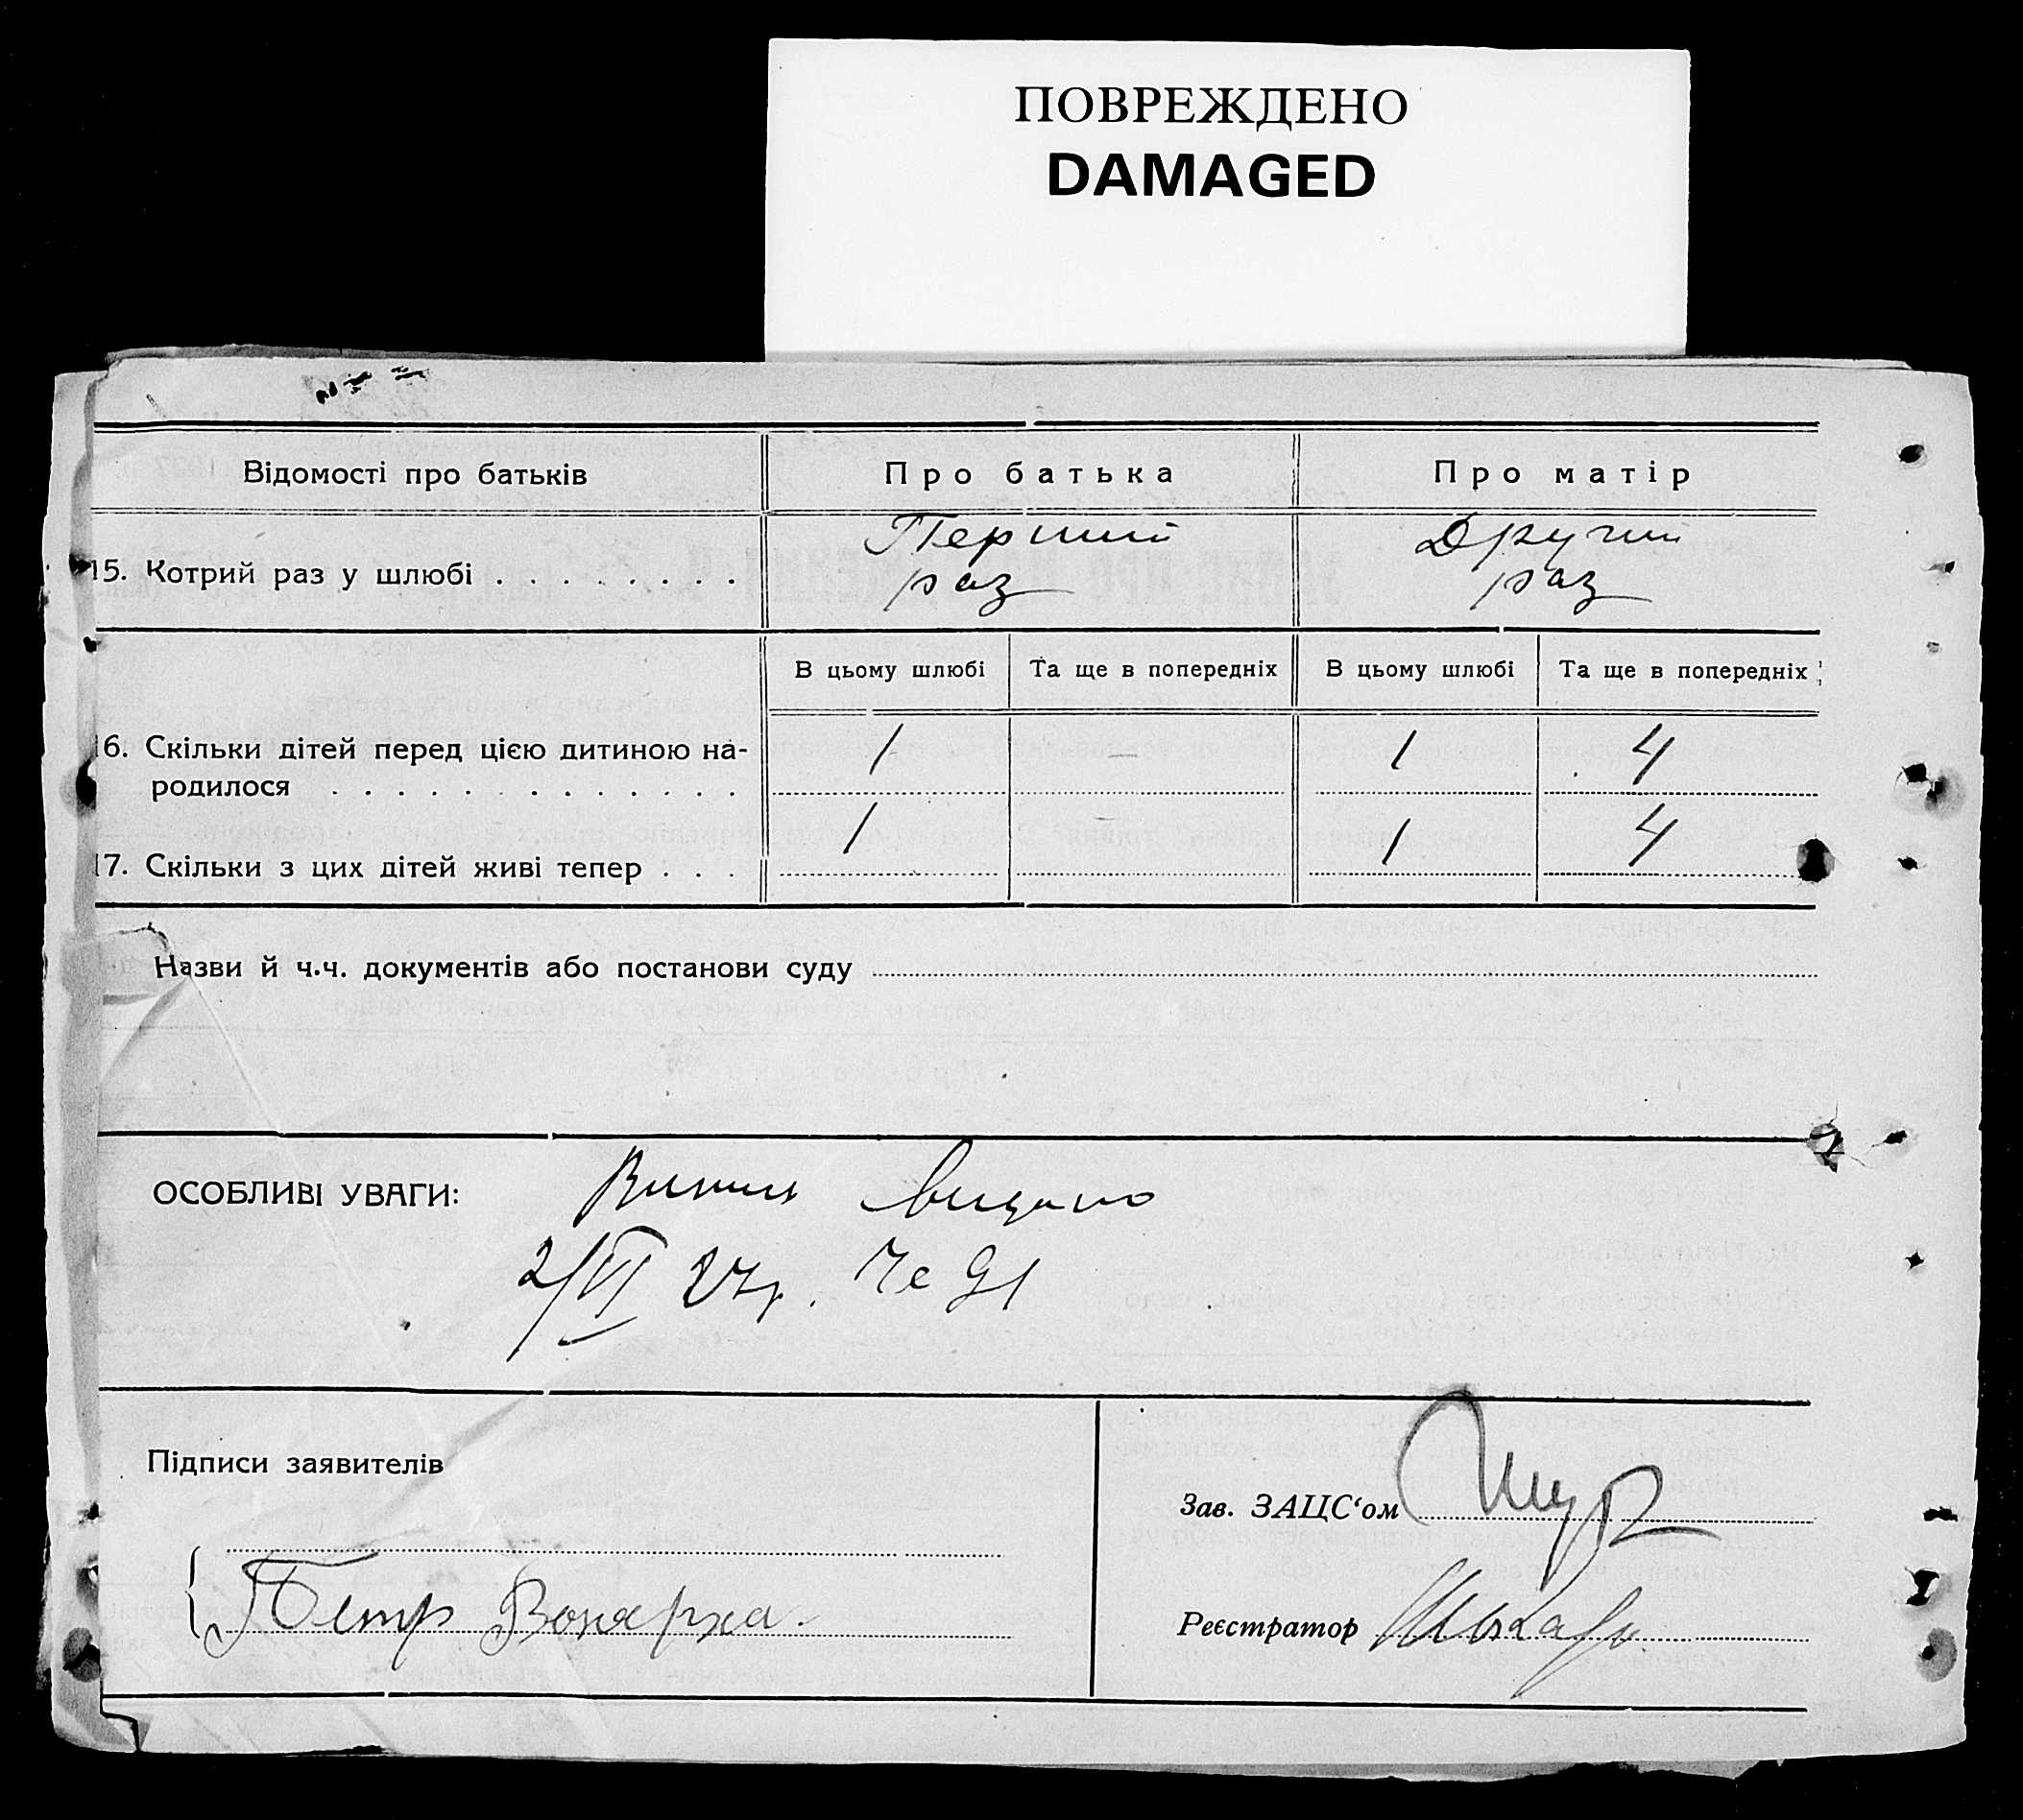 ПОВРЕЖДЕНО
DAMAGED
Відомості про батьків
Про батька
Про матір
15. Котрий раз у шлюбі
Перший
раз
Другий
раз
В цьому шлюбі
Та ще в попередніх
В цьому шлюбі
Та ще в попередніх
16. Скільки дітей перед цією дитиною на-
родилося
1 — 1 4
17. Скільки з цих дітей живі тепер
1 1 4
Назви й ч.ч. документів або постанови суду
ОСОБЛИВІ УВАГИ:
Витяг видано
2/VI 27р. № 91
Підписи заявителів
Зав. ЗАЦС‘ом
Петр
Реєстратор